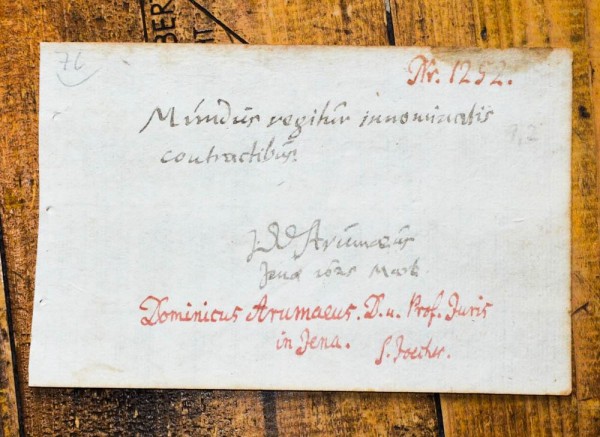 76
Nr. 1252.
Mundus regitur innominatis
contractibus.
Arumaeus
Jena
Dominicus Arumaeus. D. u. Prof. Juris
in Jena. S. Joecher.